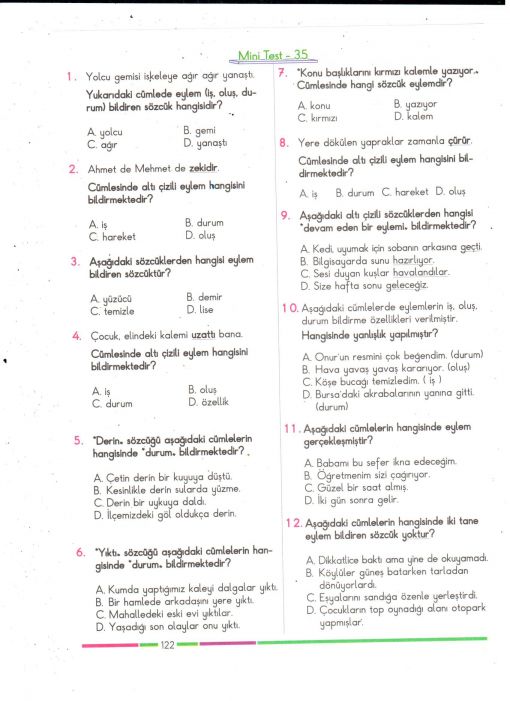 Mini Test - 35
1. Yolcu gemisi iskeleye ağır ağır yanaştı.
Yukarıdaki cümlede eylem (iş, oluş, du-
rum) bildiren sözcük hangisidir?
A. yolcu B. gemi
C. ağır D. yanaştı
2. Ahmet de Mehmet de zekidir.
Cümlesinde altı çizili eylem hangisini
bildirmektedir?
A. iş B. durum
C. hareket D. oluş
3. Aşağıdaki sözcüklerden hangisi eylem
bildiren sözcüktür?
A. yüzücü B. demir
C. temizle D. lise
4. Çocuk, elindeki kalemi uzattı bana.
Cümlesinde altı çizili eylem hangisini
bildirmektedir?
A. iş B. oluş
C. durum D. özellik
5. "Derin" sözcüğü aşağıdaki cümlelerin
hangisinde "durum" bildirmektedir?
A. Çetin derin bir kuyuya düştü.
B. Kesinlikle derin sularda yüzme.
C. Derin bir uykuya daldı.
D. İlçemizdeki göl oldukça derin.
6. "Yıktı" sözcüğü aşağıdaki cümlelerin han-
gisinde "durum" bildirmektedir?
A. Kumda yaptığımız kaleyi dalgalar yıktı.
B. Bir hamlede arkadaşını yere yıktı.
C. Mahalledeki eski evi yıktılar.
D. Yaşadığı son olaylar onu yıktı.
7. "Konu başlıklarını kırmızı kalemle yazıyor."
Cümlesinde hangi sözcük eylemdir?
A. konu B. yazıyor
C. kırmızı D. kalem
8. Yere dökülen yapraklar zamanla çürür.
Cümlesinde altı çizili eylem hangisini bil-
dirmektedir?
A. iş B. durum C. hareket D. oluş
9. Aşağıdaki altı çizili sözcüklerden hangisi
"devam eden bir eylemi" bildirmektedir?
A. Kedi, uyumak için sobanın arkasına geçti.
B. Bilgisayarda sunu hazırlıyor.
C. Sesi duyan kuşlar havalandılar.
D. Size hafta sonu geleceğiz.
10. Aşağıdaki cümlelerde eylemlerin iş, oluş,
durum bildirme özellikleri verilmiştir.
Hangisinde yanlışlık yapılmıştır?
A. Onur'un resmini çok beğendim. (durum)
B. Hava yavaş yavaş kararıyor. (oluş)
C. Köşe bucağı temizledim. ( iş )
D. Bursa'daki akrabalarının yanına gitti.
(durum)
11. Aşağıdaki cümlelerin hangisinde eylem
gerçekleşmiştir?
A. Babamı bu sefer ikna edeceğim.
B. Öğretmenim sizi çağırıyor.
C. Güzel bir saat almış.
D. İki gün sonra gelir.
12. Aşağıdaki cümlelerin hangisinde iki tane
eylem bildiren sözcük yoktur?
A. Dikkatlice baktı ama yine de okuyamadı.
B. Köylüler güneş batarken tarladan
dönüyorlardı.
C. Eşyalarını sandığa özenle yerleştirdi.
D. Çocukların top oynadığı alanı otopark
yapmışlar.
122